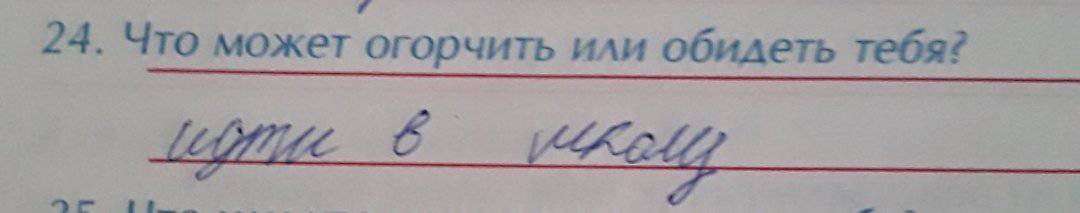 24. Что может огорчить или обидеть тебя?
идти в школу
25.